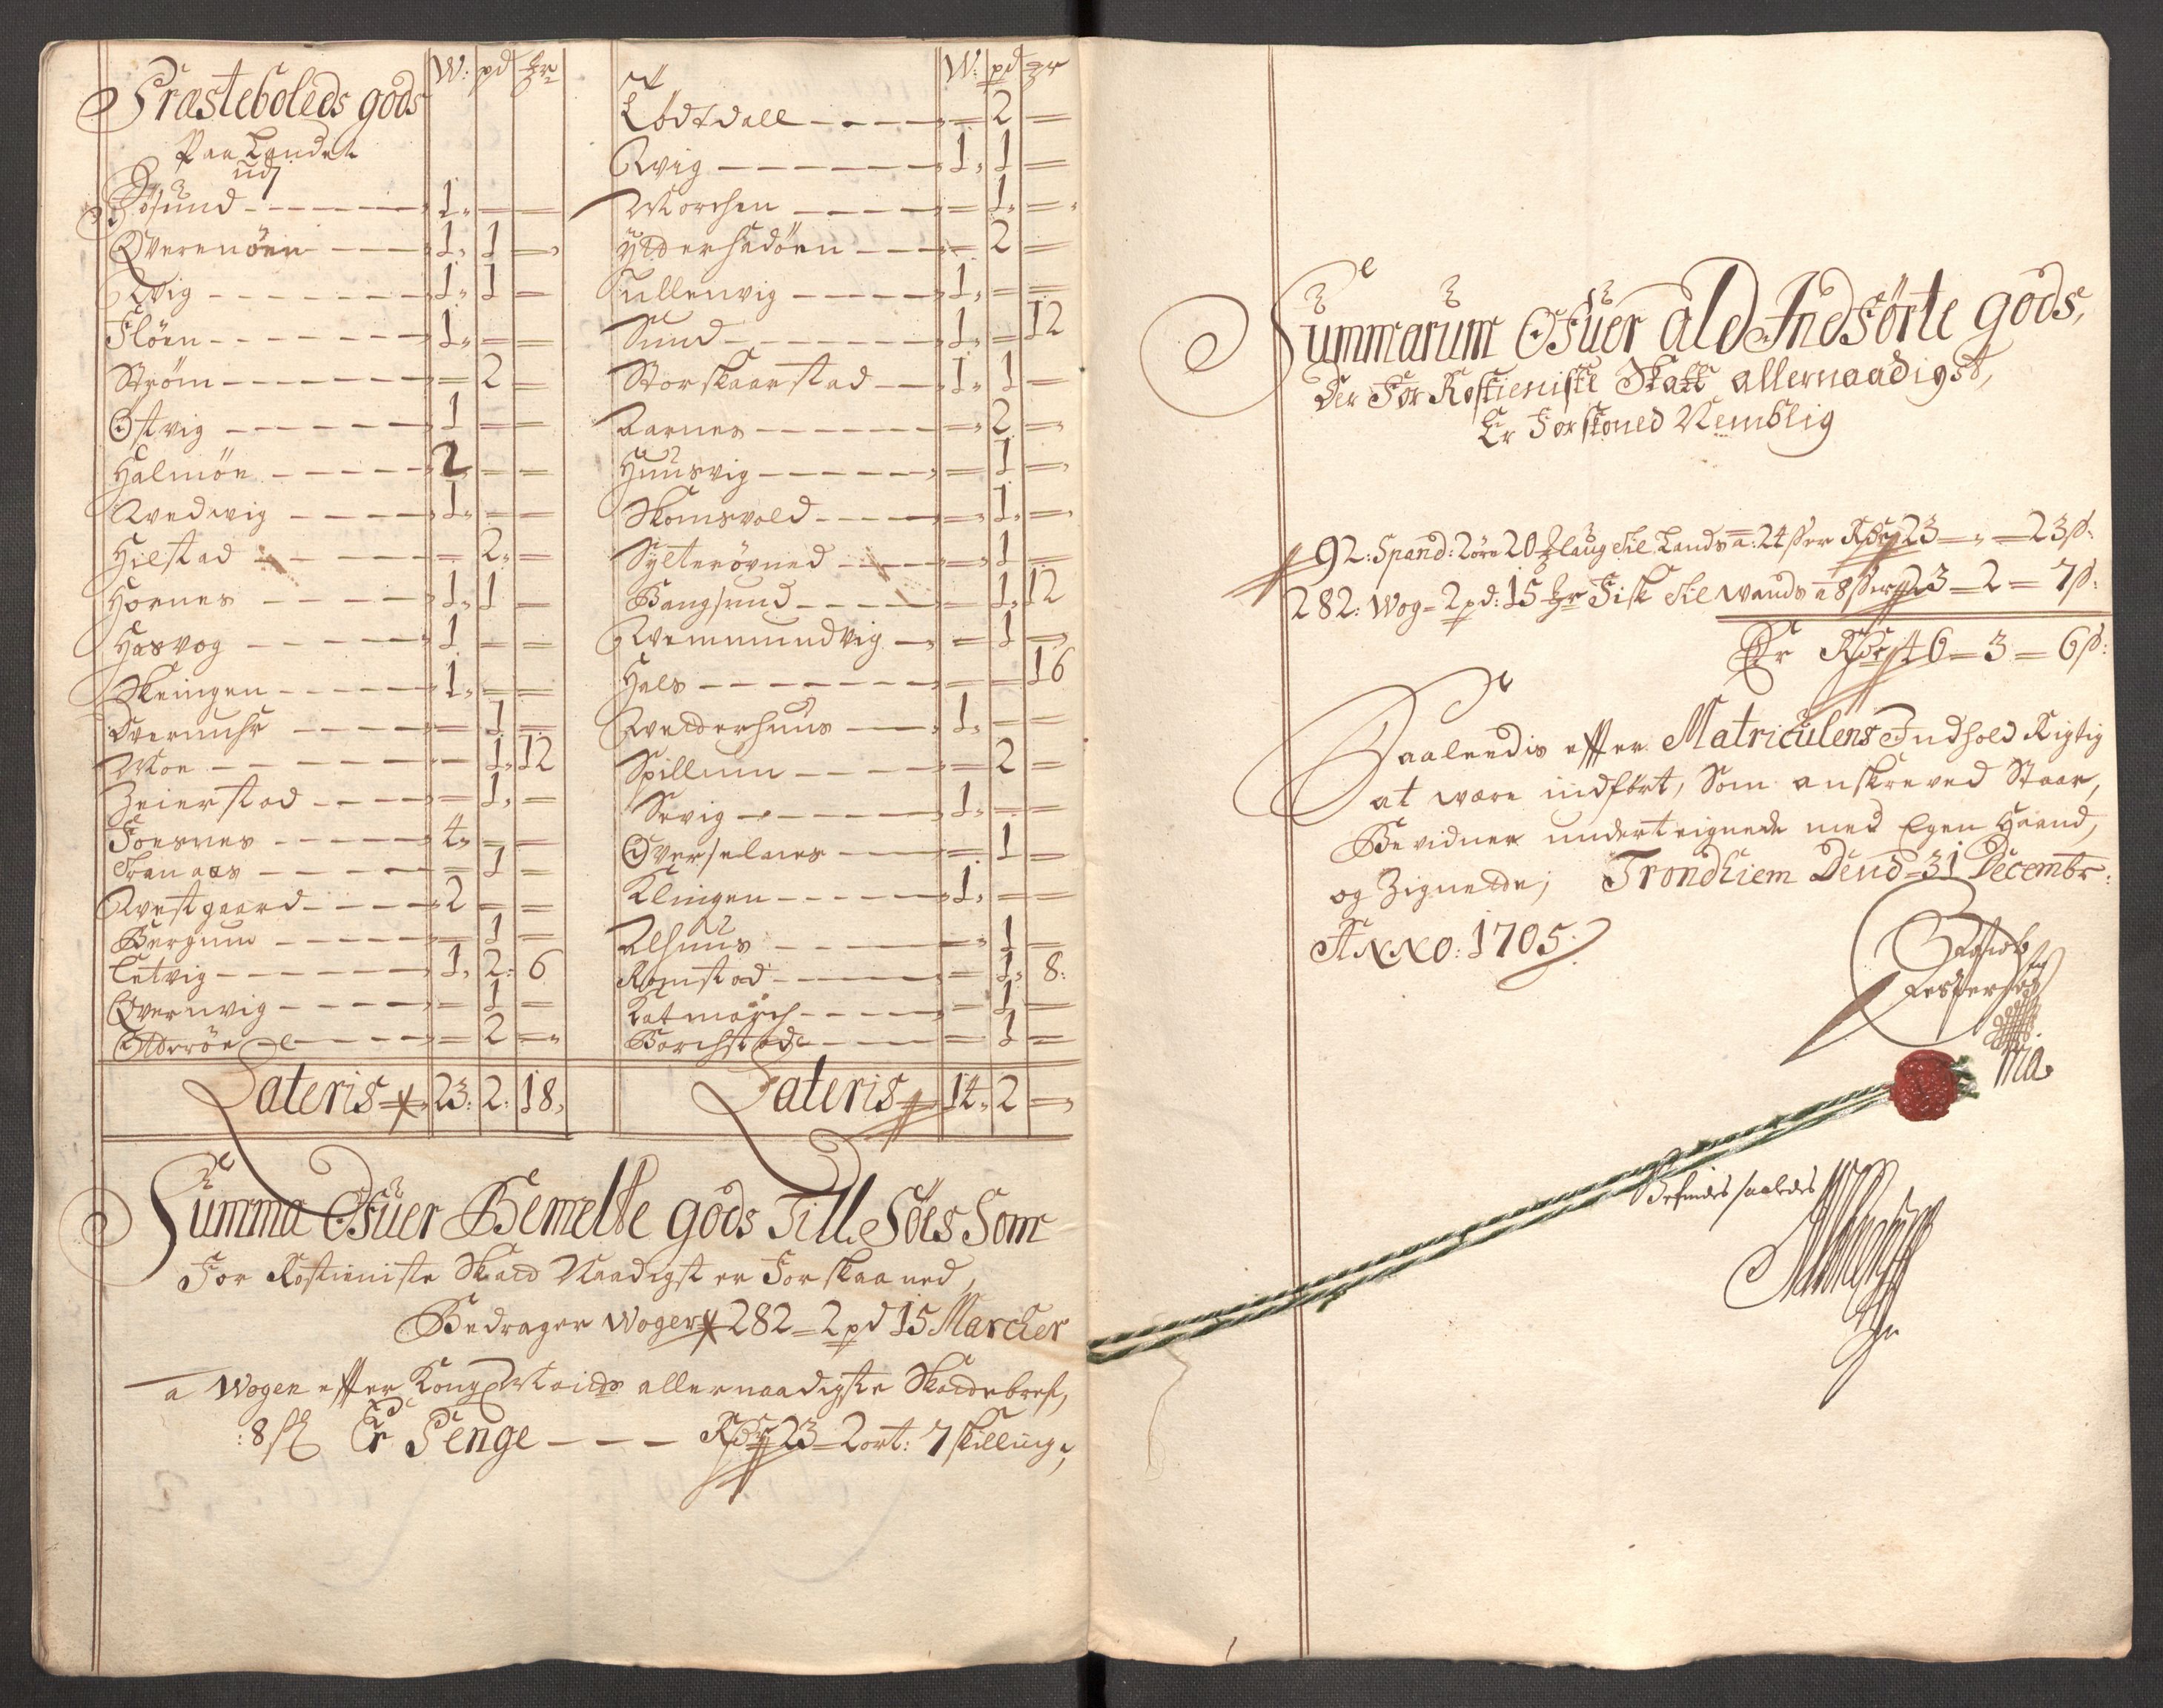 Præsteboleds gods
W: pd
Paa Landet
udj
Dösund 1 = =
Qverenöen 1 1 =
Wiig 1 1 =
Flöen 1 = =
Ström = 2 =
Östvig 1 = =
Halmöe 2 = =
Avedwig 1 = =
Hilstad = 2 =
Hornes 1 1 =
Hasvog 1 = =
Skeingen 1 = =
Overmuhr = 1 =
Moe = 1 12
Zeierstad = 1 =
Foesnes 4 = =
Tranaas = 1 =
Westgaard 2 = =
Bergum = 1 =
Letvig 1 2 6
Qvernvig = 1 =
Otterøe = 2 =
Lateris 23: 2: 18
W: pd
Lödtdall = 2 =
Wiig 1 1 =
Morchen = 1 =
Ytterhadöen = 2 =
Tullenvig 1 = =
Sund 1 = 12
Storskaarstad 1 1 =
Aarnes = 2 =
Huusvig = 1 =
Skomsvold = 1 =
Sylterövned = 1 =
Bangsund = 1 12
Wemmundvig = 1 =
Hals = = 16
Welderhuus 1 = =
Spillum = 2 =
Sevig 1 = =
Overselnes = 1 =
Klingen 1 = =
Alhuus = 1 =
Romstad = 1 8:
Katmarch = 1 =
Borchstad = 1 =
Lateris 14 2 =
Summa Ofuer Bemelte gods Till Söes Som
For Rostieniste Skatt Naadigst er Forskaaned,
Bedrager Woger 282 = 2 pd 15 Marcker
a Wogen effter Kongl Maits allernaadigste Skattebref,
:8 s Er Penge Rdr 23 = 2 ort: 7 skilling;
Summarum Ofuer ald Indförte gods,
Der For Rostieniste Skatt allernaadigst,
Er Forskoned Nemblig
92: Spand: 2öre 20 laug til Lands a: 24 s er Rdr 23 = = 23 s:
282: Wog = 2 pd: 15 Fisk til wands a 8 s er 23 = 2 = 7 s:
Er Rdr 46 = 3 = 6 s:
Saaleedis effter Matriculens Indhold Rigtig
at være indfört, Som anskreved Staar,
Bevidner underteignede med Egen Haand,
og Zignette; Trondhiem Dend = 31 Decembr:
Anno: 1705
Jespersen
ma.
Befindes saaledes